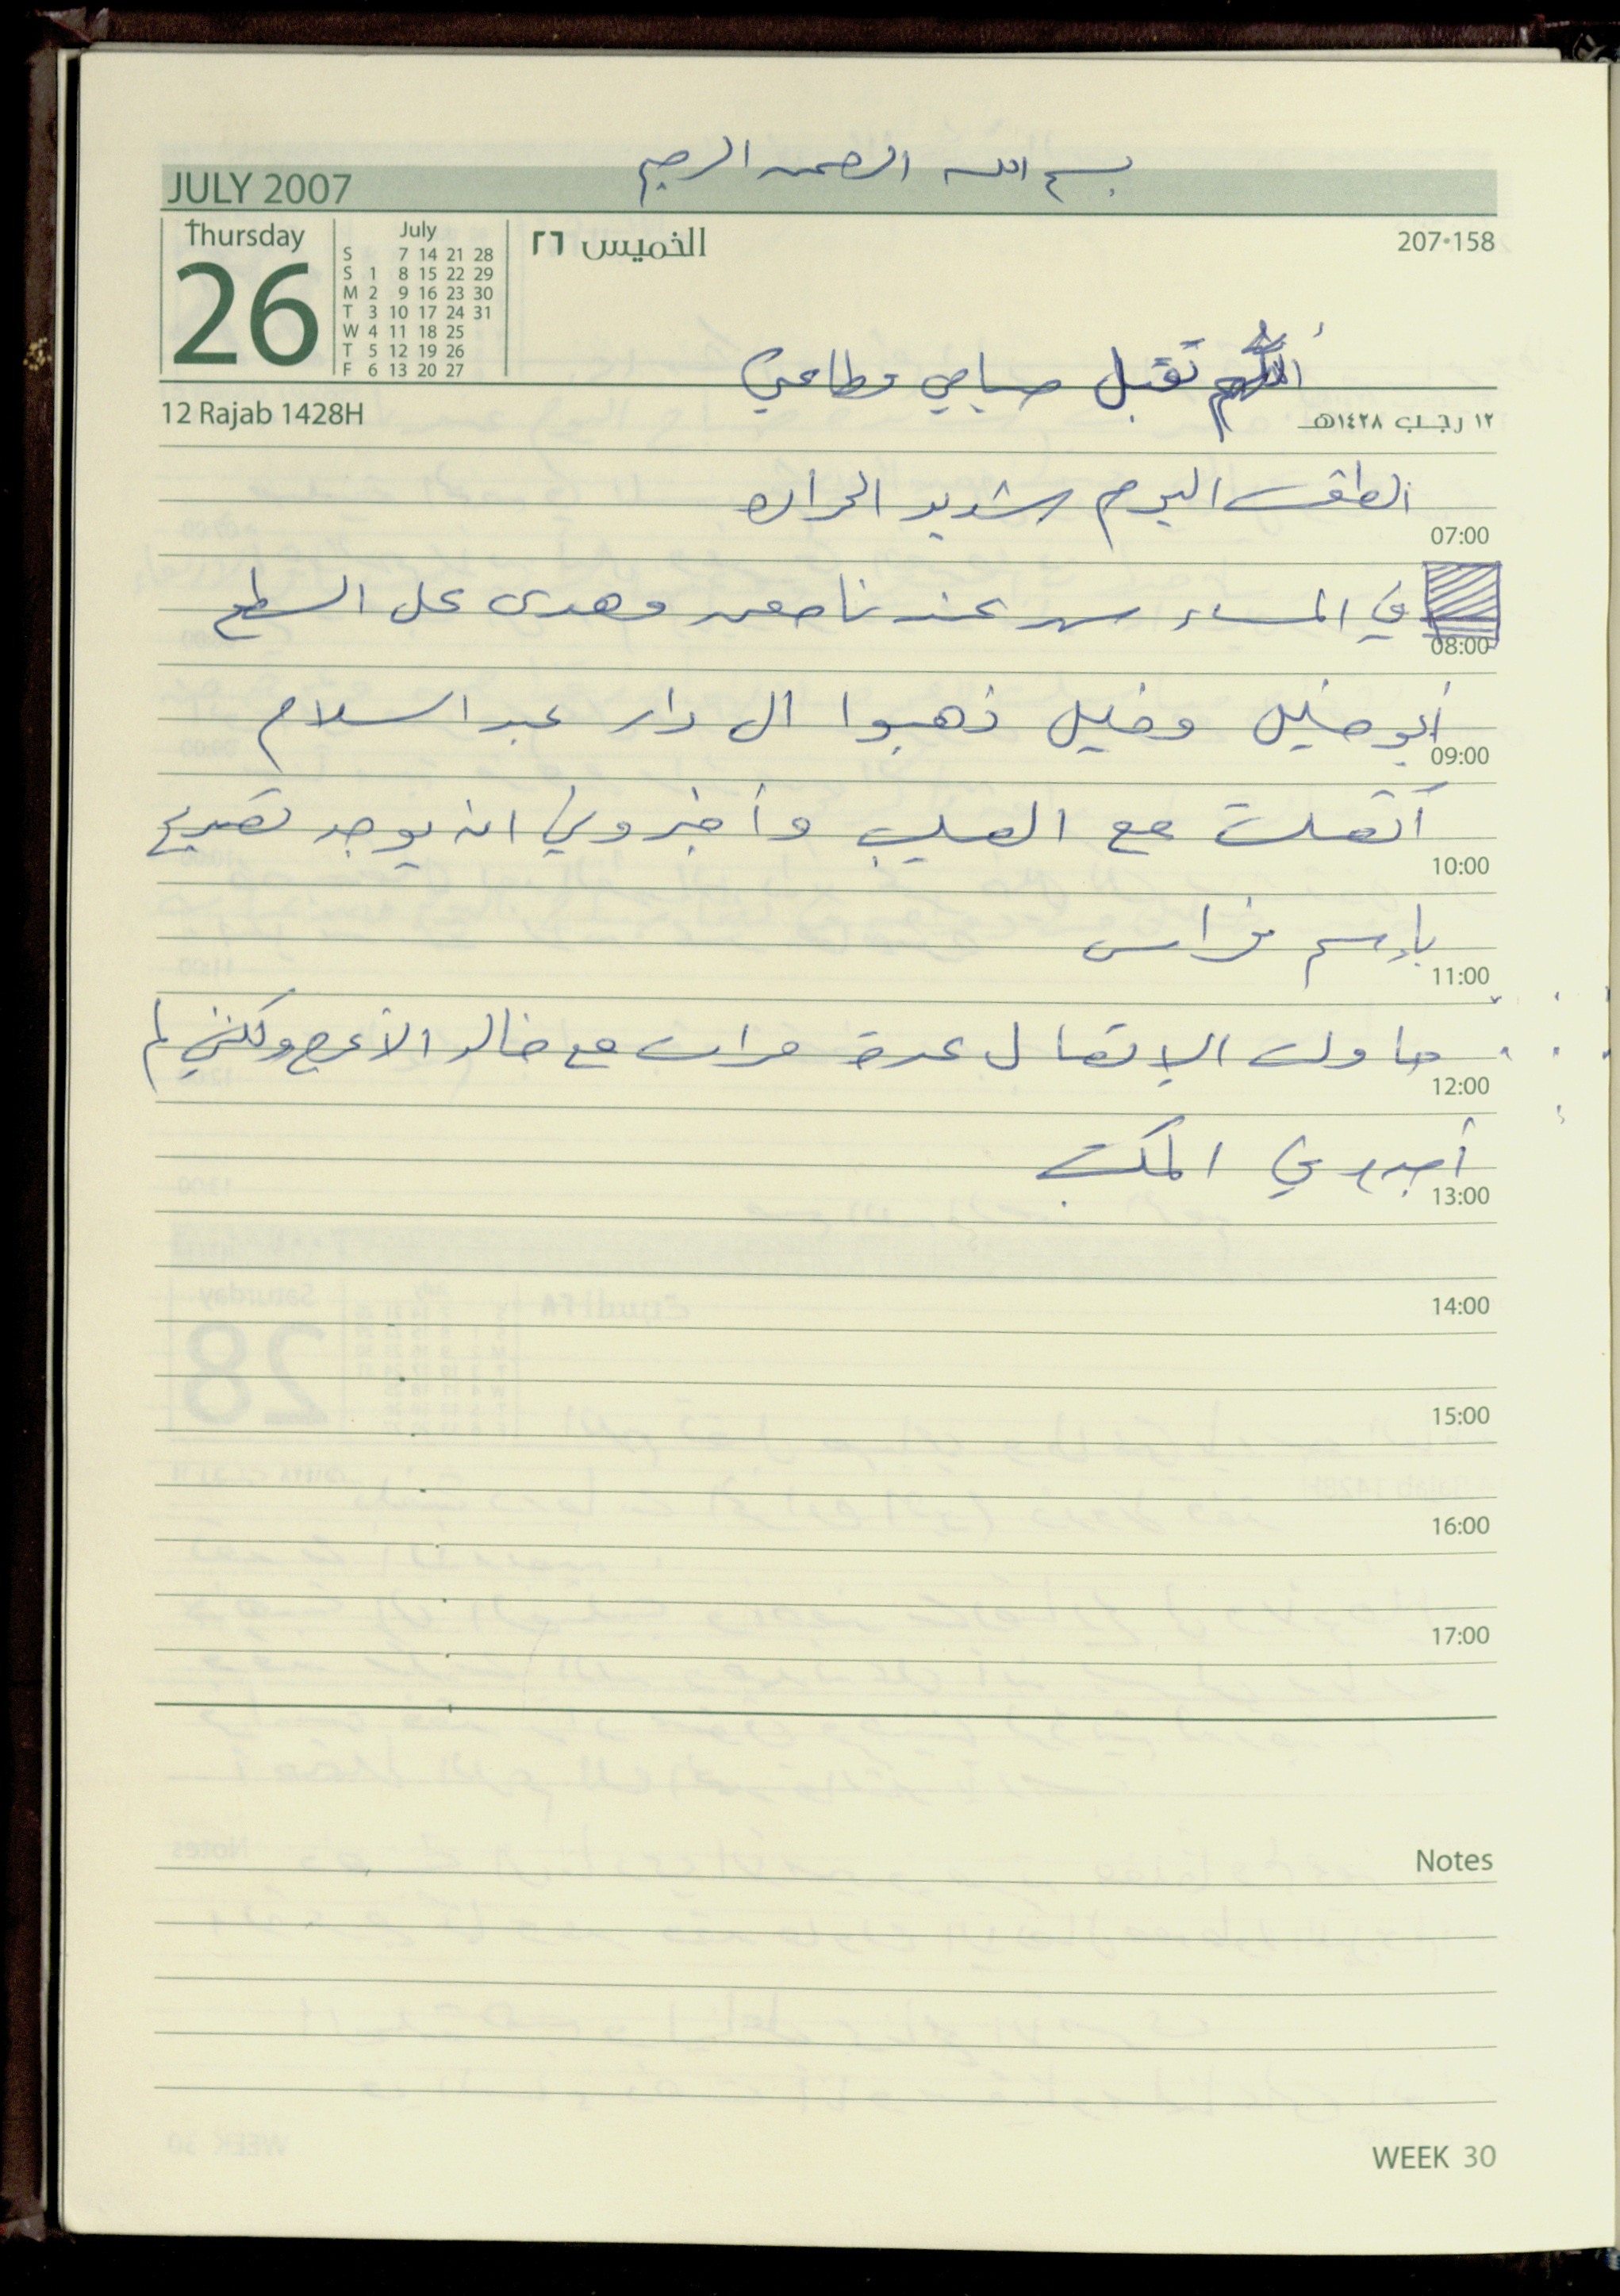 بسم الله الرحمن الرحيم
JULY 2007
Thursday
26
July
S 7 14 21 28
S 1 8 15 22 29
M 2 9 16 23 30
T 3 10 17 24 31
W 4 11 18 25
T 5 12 19 26
F 6 13 20 27
الخميس ٢٦
207•158
اللهم تقبل صيامي وطاعتي
12 Rajab 1428H
١٢ رجب ١٤٢٨هـ
الطقس اليوم شديد الحراره
07:00
في المساء سهر عندنا معن وهدى على السطح
08:00
أبو خليل وخليل ذهبوا الى دار عبد السلام
09:00
أتصلت مع الصليب وأخبروني انه يوجد تصريح
10:00
بإسم فراس
11:00
حاولت الإتصال عدة مرات مع خالد الأعرج ولكنني لم
12:00
أجده في المكتب
13:00
14:00
15:00
16:00
17:00
Notes
WEEK 30